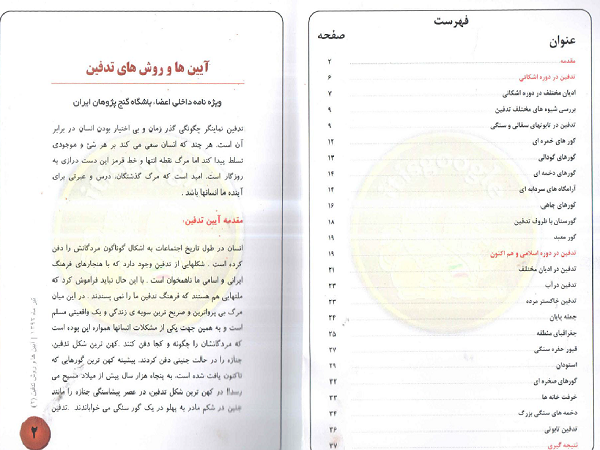 فهرست
عنوان صفحه
مقدمه ۲
تدفین در دوره اشکانی ۶
ادیان مختلف در دوره اشکانی ۷
بررسی شیوه های مختلف تدفین ۹
تدفین در تابوتهای سفالی و سنگی ۹
گور های خمره ای ۱۲
گورهای گودالی ۱۳
گورهای دخمه ای ۱۴
آرامگاه های سردابه ای ۱۴
گورهای چاهی ۱۶
گورستان با ظروف تدفین ۱۸
گور معبد ۱۹
تدفین در دوره اسلامی و هم اکنون ۱۹
تدفین در ادیان مختلف ۲۱
تدفین درآب ۲۳
تدفین خاکستر مرده ۲۳
جمله پایان ۲۴
جغرافیای منطقه ۲۵
قبور حفره سنگی ۲۷
استودان ۲۹
گورهای صخره ای ۳۲
خرفت خانه ها ۳۳
دخمه های سنگی بزرگ ۳۴
تدفین تابوتی ۳۶
نتیجه گیری ۳۷
آیین ها و روش های تدفین
ویژه نامه داخلی اعضاء باشگاه گنج پژوهان ایران
تدفین نمایانگر چگونگی گذر زمان و بی اختیار بودن انسان در برابر
آن است. هر چند که انسان سعی می کند بر هر شئ و موجودی
تسلط پیدا کند اما مرگ نقطه انتها و خط قرمز این دست درازی به
روزگار است. امید است که مرگ گذشتگان، درس و عبرتی برای
آینده ها انسانها باشد .
مقدمه آیین تدفین:
انسان در طول تاریخ اجتماعات به اشکال گوناگون مردگانش را دفن
کرده است . شکلهایی از تدفین وجود دارد که با هنجارهای فرهنگ
ایرانی و اسامی ما ناهمخوان است . با این حال نباید فراموش کرد که
ملتهایی هم هستند که فرهنگ تدفین ما را نمی پسندند . در این میان
مرگ بی پرواترین و صریح ترین سویه ی زندگی و یک واقعیتی مسلم
است و به همین جهت یکی از مشکلات انسانها همواره این بوده است
که مردگانشان را چگونه و کجا دفن کنند .کهن ترین شکل تدفین،
جنازه را در حالت جنینی دفن کردند. پیشینه کهن ترین گورهایی که
تاکنون یافت شده است، به پنجاه هزار سال پیش از میلاد مسیح می
رسد!! در کهن ترین شکل تدفین، در عصر پیشاسنگی جنازه را مانند
جنین در شکم مادر به پهلو در یک گور سنگی می خواباندند .تدفین
آیین ها و روش تدفین (۲)
۲